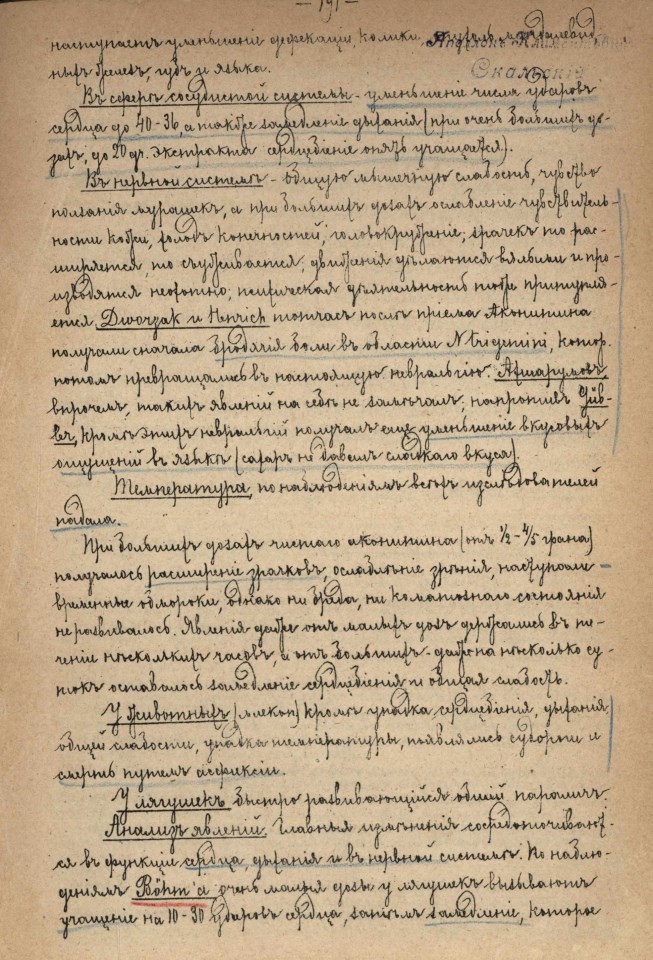 — 191 —
наступаетъ уменьшеніе дефекаціи, колики,
ныхъ железъ, губъ и языка.
Въ сферѣ сосудистой системы - уменьшеніе числа ударовъ
сердца до 40-36, а также замедленіе дыханія (при очень большихъ до-
захъ, до 20 гр. экстракта сердцебіеніе опять учащается).
Въ нервной системѣ - общую мышечную слабость, чувство
ползанія мурашекъ, а при большихъ дозахъ ослабленіе чувствитель-
ности кожи, холодъ конечностей, головокруженіе; зрачекъ то рас-
ширяется, то съуживается; движенія дѣлаются вялыми и про-
изводятся неохотно; психическая дѣятельность тоже притупля-
ется. Dworzak и Henrich тотчасъ послѣ пріема Аконитина
получали сначала бродячія боли въ области N trigemini, котор.
потомъ превращались въ настоящую невральгію. Ахшарумовъ,
впрочемъ, такихъ явленій на себѣ не замѣчалъ, напротивъ
кромѣ этихъ невральгій получалъ еще уменьшеніе вкусовыхъ
ощущеній въ языкѣ (сахаръ не давалъ сладкаго вкуса).
Температура, по наблюденіямъ всѣхъ изслѣдователей
падала.
При большихъ дозахъ чистаго аконитина (отъ 1/2 - 4/5 грана)
получалось расширеніе зрачковъ, ослабленіе зрѣнія, наступали
временные обмороки, однако ни бреда, ни коматознаго состоянія
не развивалось. Явленія даже отъ малыхъ дозъ держались въ те-
ченіи нѣсколькихъ часовъ, а отъ большихъ - даже на нѣсколько су-
токъ оставалось замедленіе сердцебіенія и общая слабость.
У животныхъ (млекоп) кромѣ упадка сердцебіенія, дыханія,
общей слабости, упадка температуры, появлялись судороги и
смерть путемъ асфиксіи.
У лягушекъ быстро развивающійся общій параличъ.
Анализъ явленій. Главныя измѣненія сосредоточивают-
ся въ функціи сердца, дыханія и въ нервной системѣ. По наблю-
деніямъ Böhm'а, очень малыя дозы у лягушекъ вызываютъ
учащеніе на 10-30 ударовъ сердца, затѣмъ замедленіе, которое